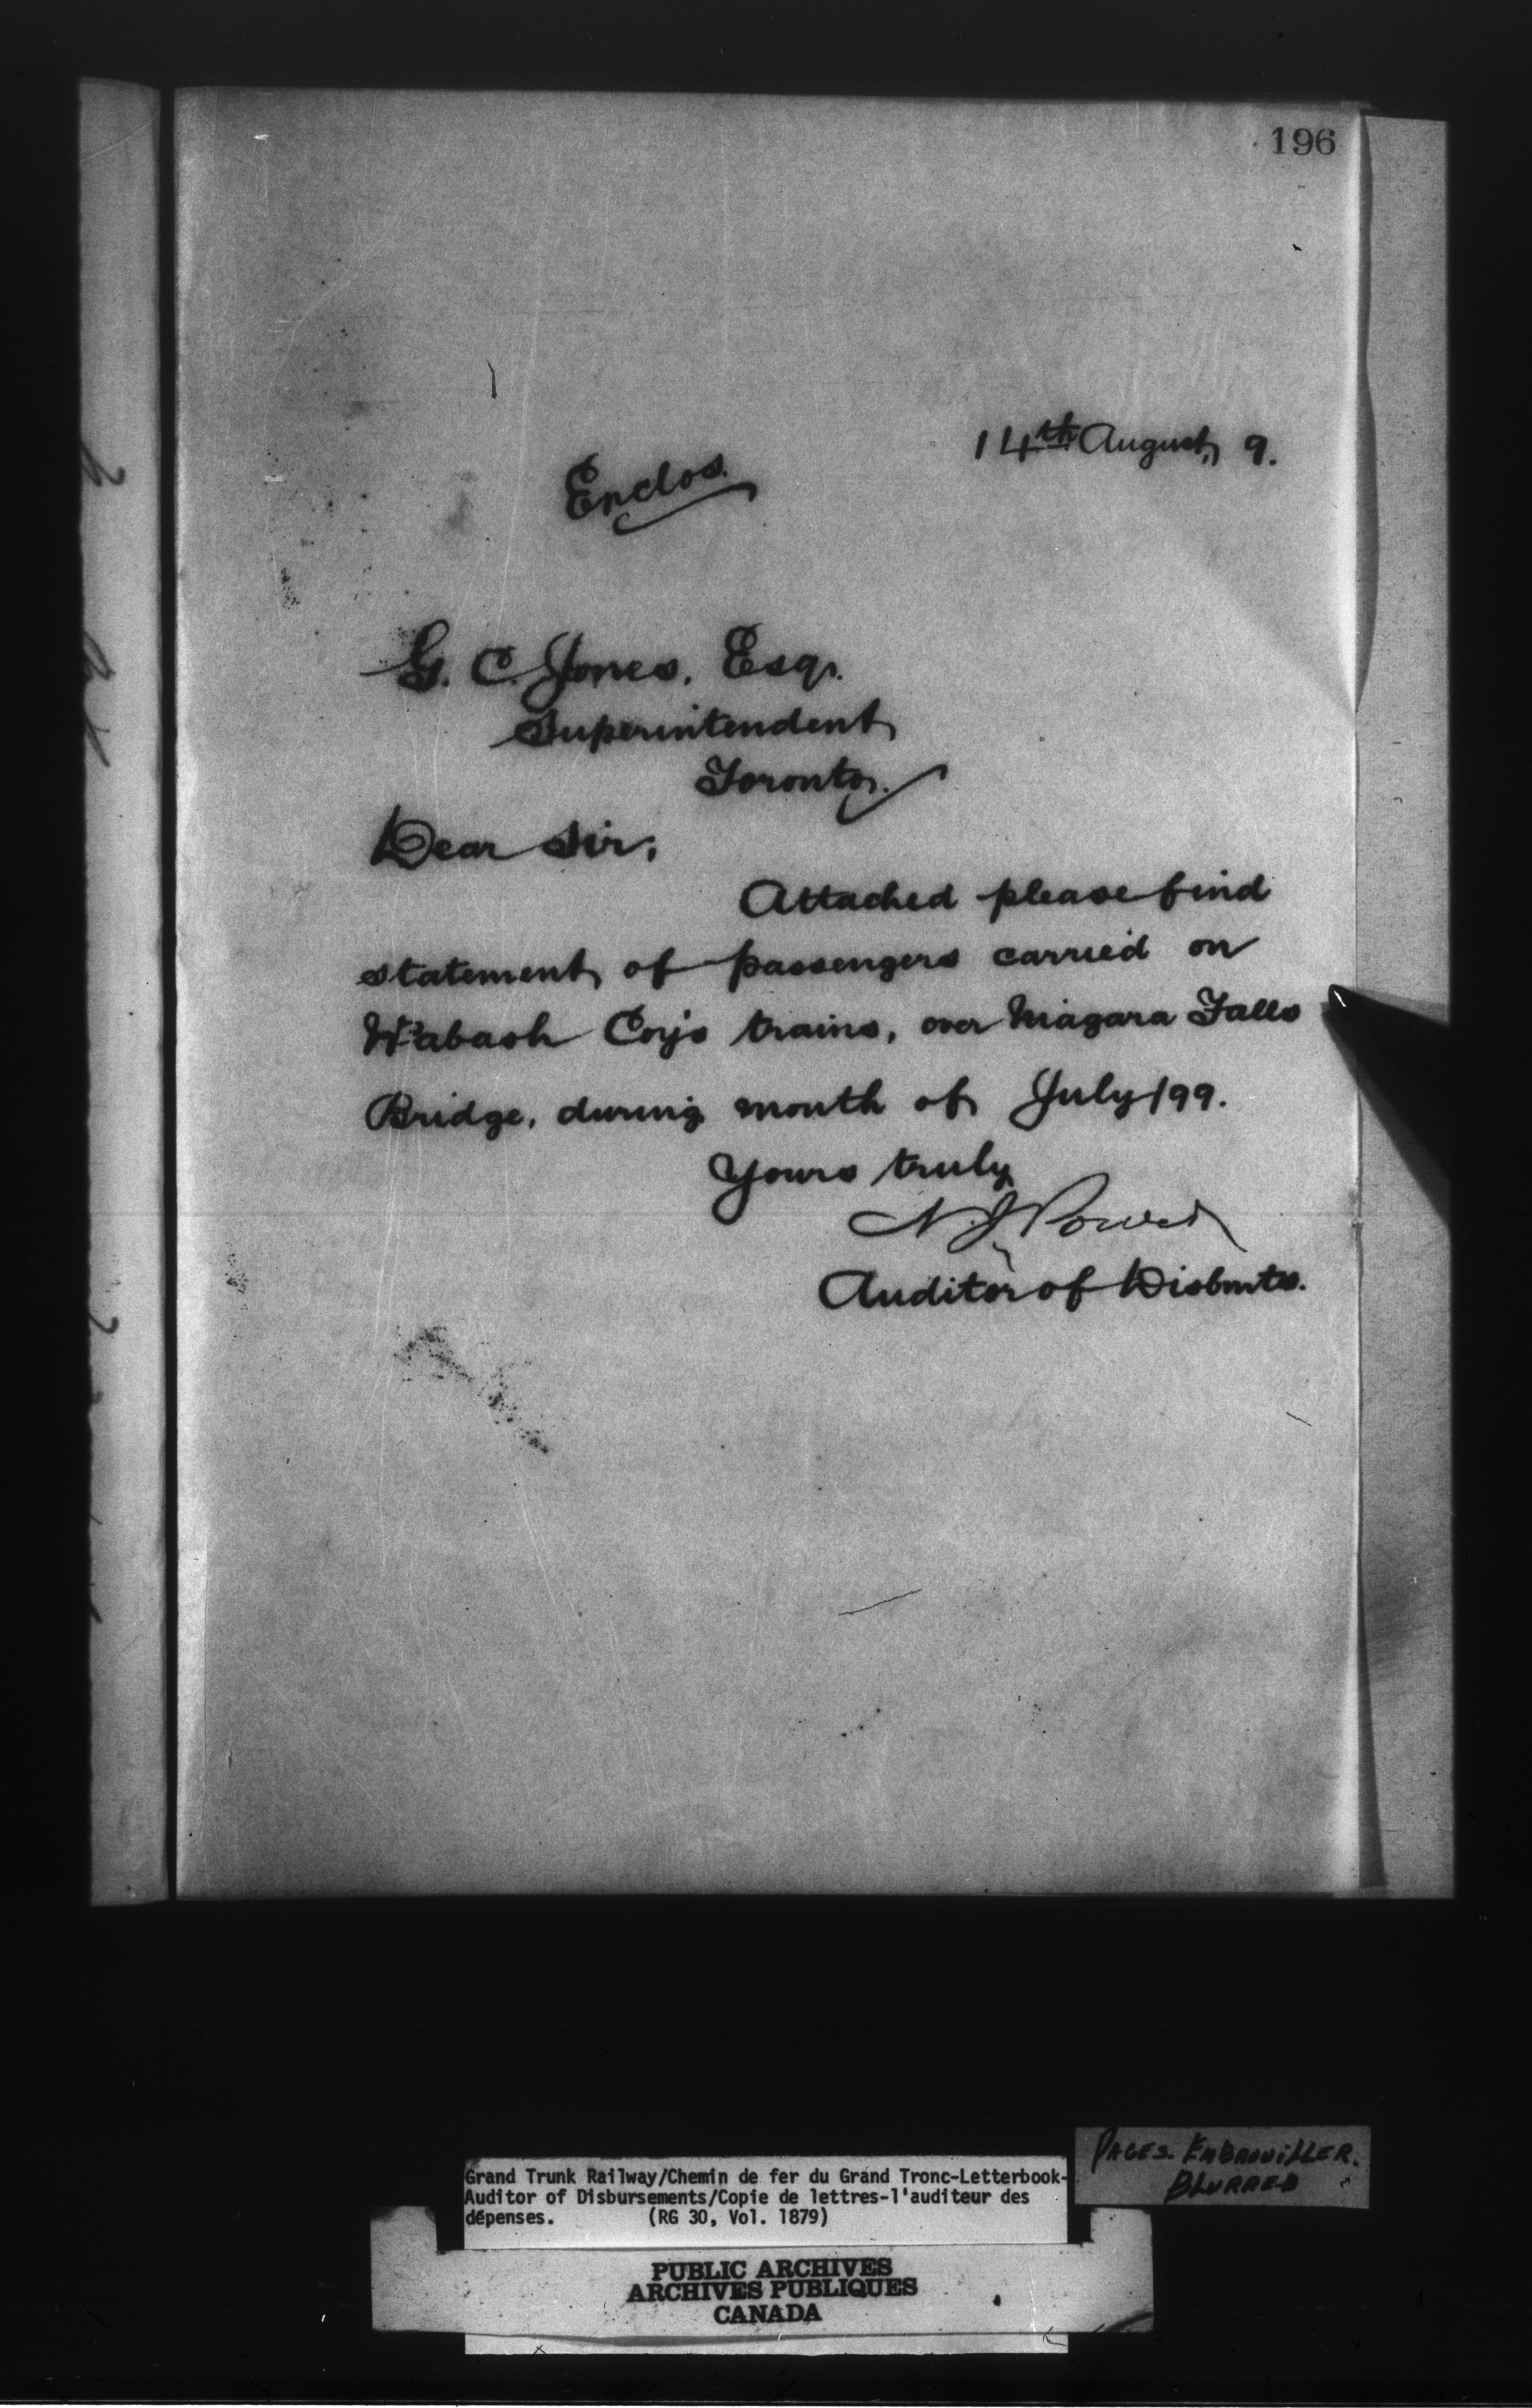 196
14th August, 9.
Enclos.
G. C. Jones, Esqr.
Superintendent
Toronto.
Dear Sir;
Attached please find
statement of passengers carried on
Wabash Coy's trains, over Niagara Falls
Bridge, during month of July/99.
Yours truly
N. J. Power
Auditor of Disbmts.
Grand Trunk Railway/Chemin de fer du Grand Tronc-Letterbook-
Auditor of Disbursements/Copie de lettres-l'auditeur des
dépenses. (RG 30, Vol. 1879)
PAGES. EMBROUILLER.
BLURRED
PUBLIC ARCHIVES
ARCHIVES PUBLIQUES
CANADA